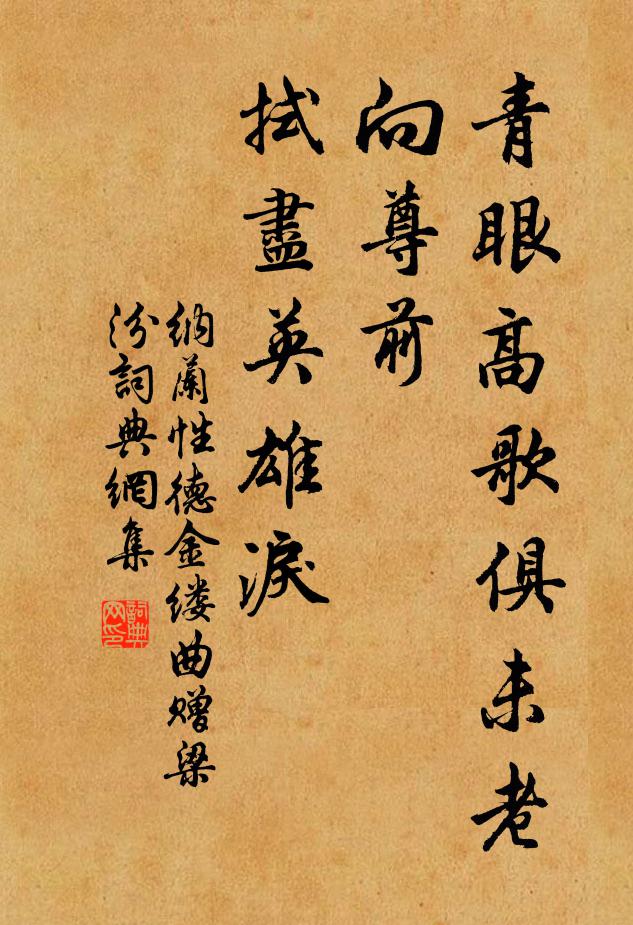 青眼高歌俱未老
向尊前
拭盡英雄淚
納蘭性德金缕曲赠梁
汾詞典網集
詞典网印